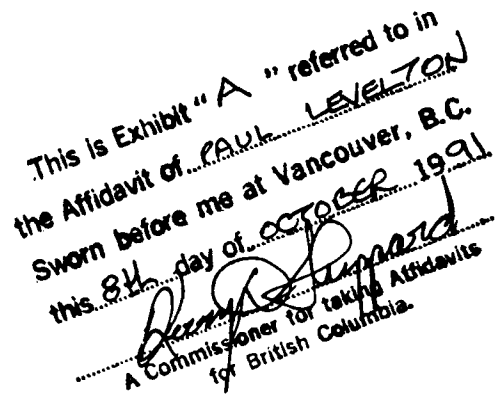 This is Exhibit "A" referred to in
the Affidavit of PAUL LEVELTON
Sworn before me at Vancouver, B.C.
this 8th day of OCTOBER 1991.
A Commissioner for taking Affidavits
for British Columbia.